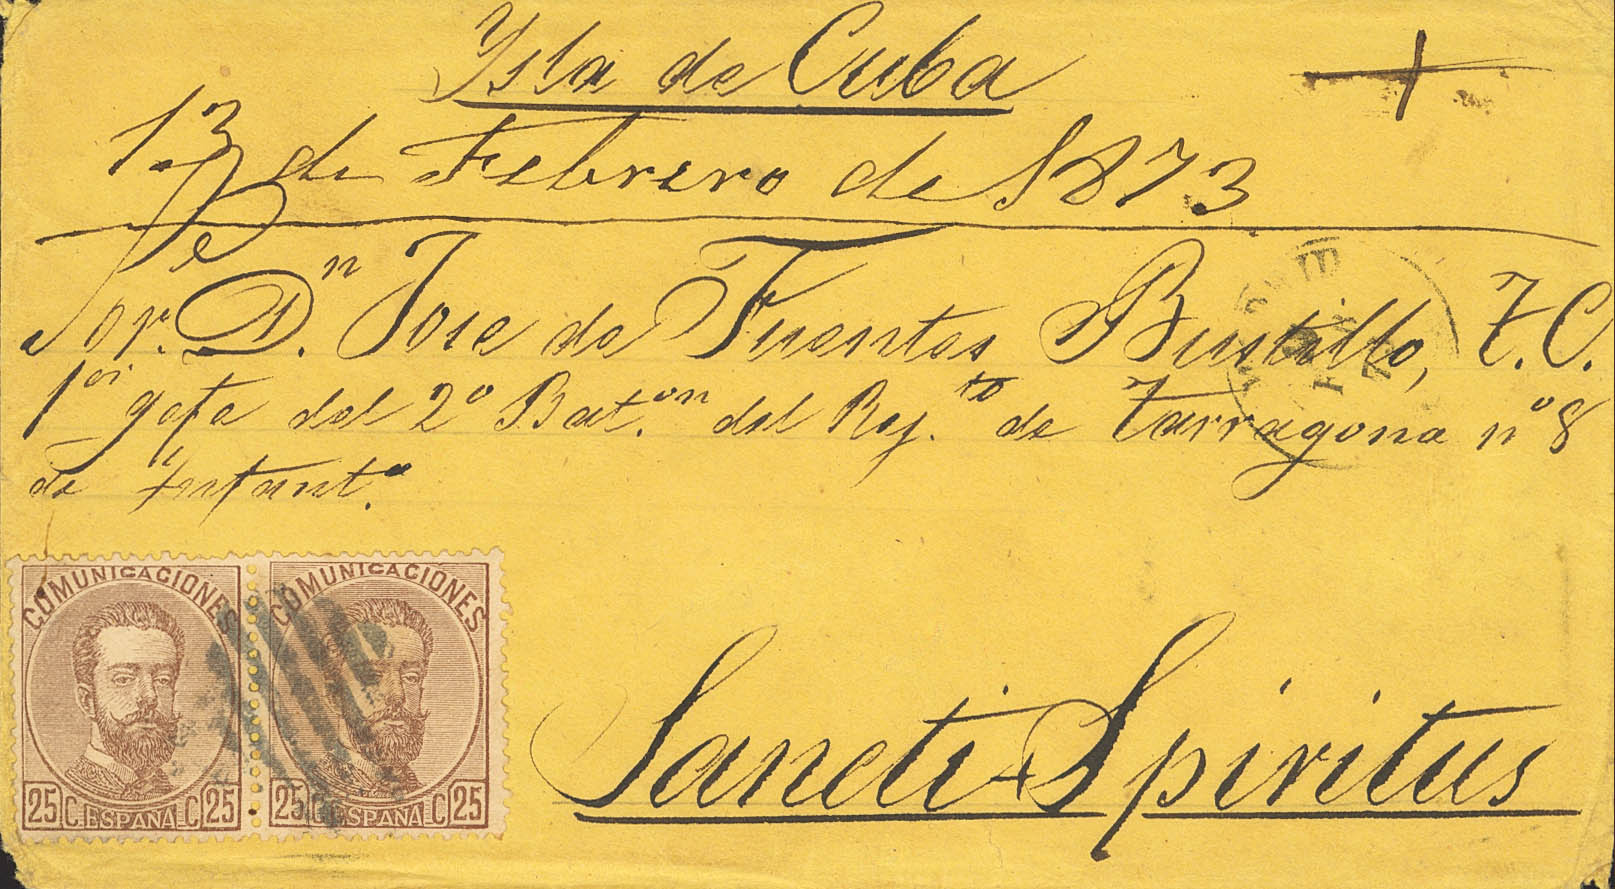 Ysla de Cuba
13 de Febrero de 1873
Sor. Dn. Jose de Fuentes Bustillo, T. C.
1er gefe del 2º Bat.on del Rej.to de Tarragona nº 8
de Infant.a
COMUNICACIONES
25 C. ESPAÑA C. 25
COMUNICACIONES
25 C. ESPAÑA C. 25
Sancti Spiritus